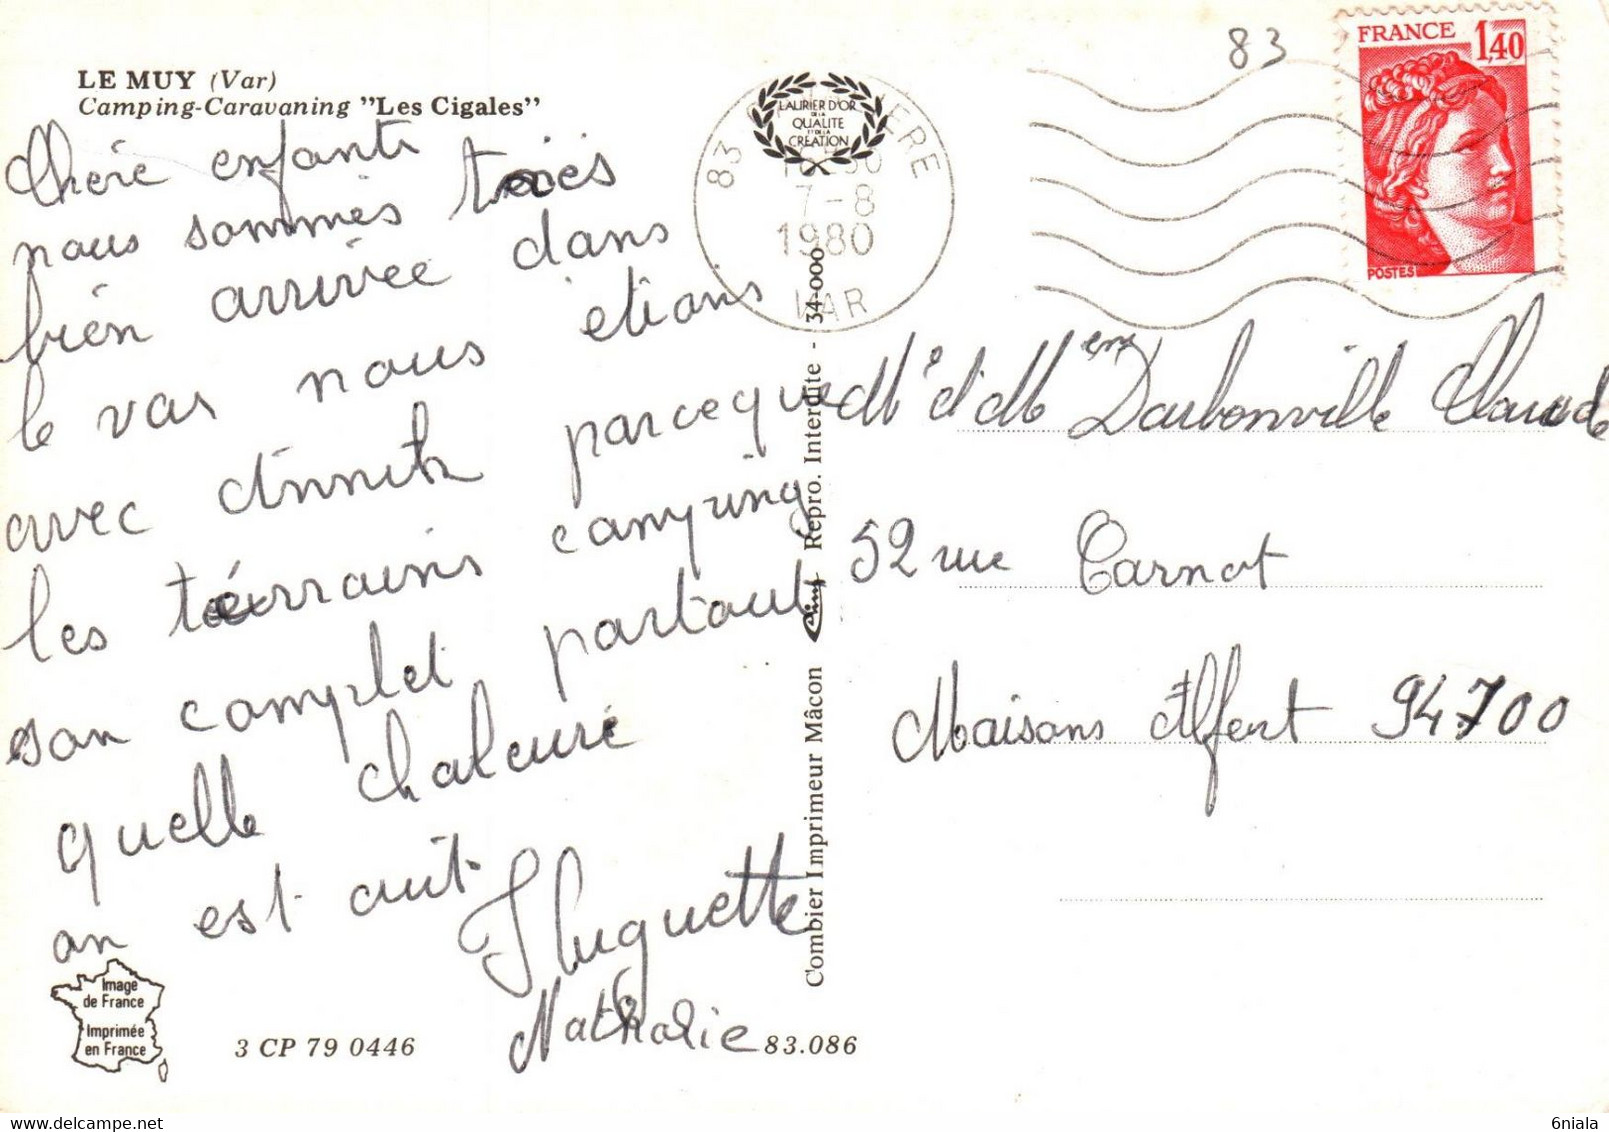 LE MUY (Var)
Camping-Caravaning "Les Cigales"
Chère enfants
nous sommes très
bien arrivée dans
le var nous étions
avec parceque
les térrains camping
son complet partout
quelle chaleure
on est cuit
Huguette
Nathalie
Image
de France
Imprimée
en France
3 CP 79 0446
83.086
Combier Imprimeur Mâcon Cim Repro. Interdite - 34-000
83
LAURIER D'OR
DE LA
QUALITE
ET DE LA
CREATION
7-8
1980
VAR
83
FRANCE 1,40
POSTES
Mr et Mme Darbonville Claude
52 rue Carnot
Maisons Alfort 94700
6niala